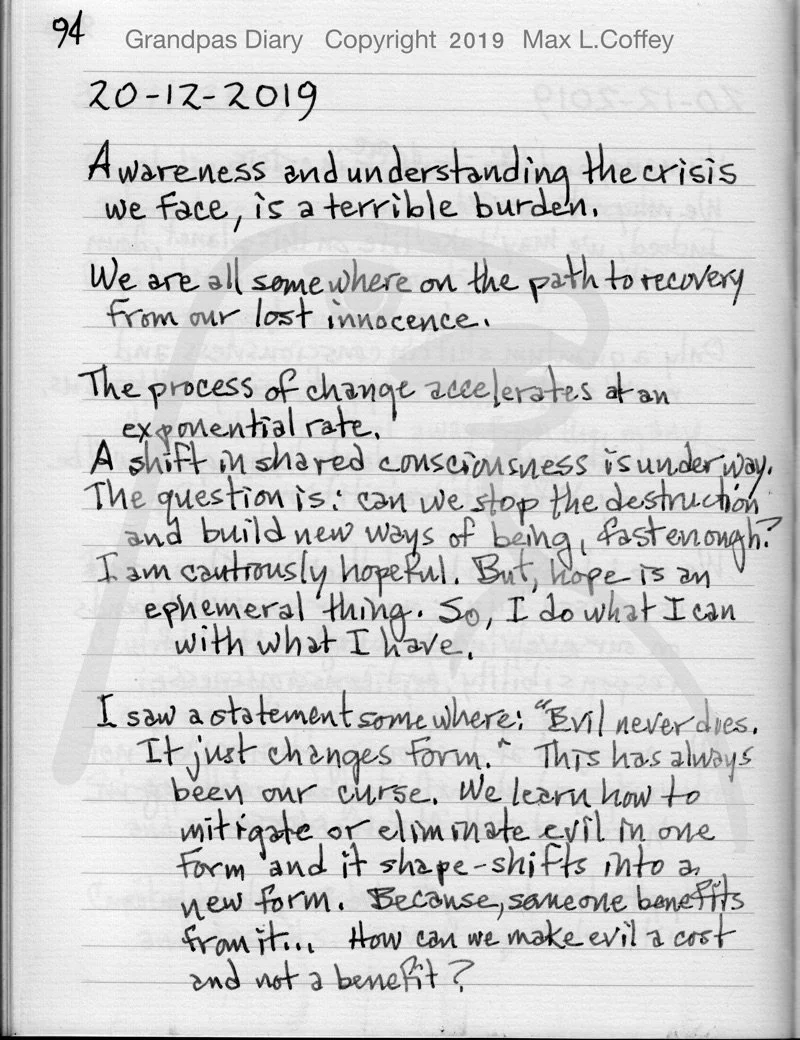 94
Grandpas Diary Copyright 2019 Max L.Coffey
20-12-2019
Awareness and understanding the crisis
we face, is a terrible burden.
We are all somewhere on the path to recovery
from our lost innocence.
The process of change accelerates at an
exponential rate.
A shift in shared consciousness is underway.
The question is: can we stop the destruction
and build new ways of being, fast enough?
I am cautiously hopeful. But, hope is an
ephemeral thing. So, I do what I can
with what I have.
I saw a statement somewhere: "Evil never dies.
It just changes form." This has always
been our curse. We learn how to
mitigate or eliminate evil in one
form and it shape-shifts into a
new form. Because, someone benefits
from it... How can we make evil a cost
and not a benefit?